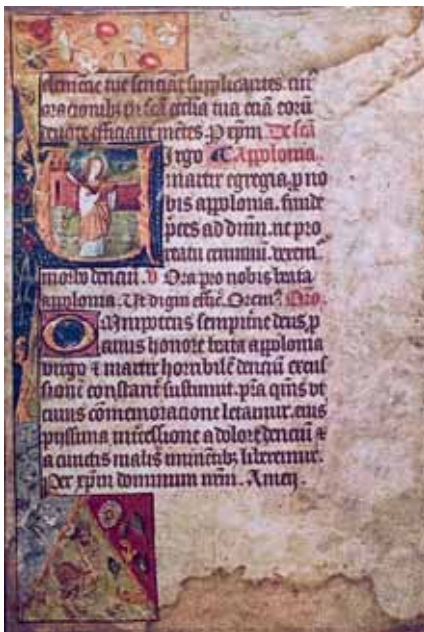 clemēcie tue senciāt supplicantes.
oracionibz ecclia tua
efficiant P xpm De scā
Virgo Appolonia.
martir egregia, p no
bis appolonia. funde
pces ad dnm. ne pro
reatu criminū. vexem
morbo denciū. v Ora pro nobis beata
appolonia. Ut digni effic. Orem Oro.
Omnipotens sempitne deus, p
cuius honore beata appolonia
virgo & martir horribilē denciū excus
sionē constant sustinuit. psta qms vt
cuius cōmemoracione letamur. eius
pijssima intcessione a dolore denciū &
a cunctis malis iminētibz liberemur.
Per xpm dominum nrm. Amen.